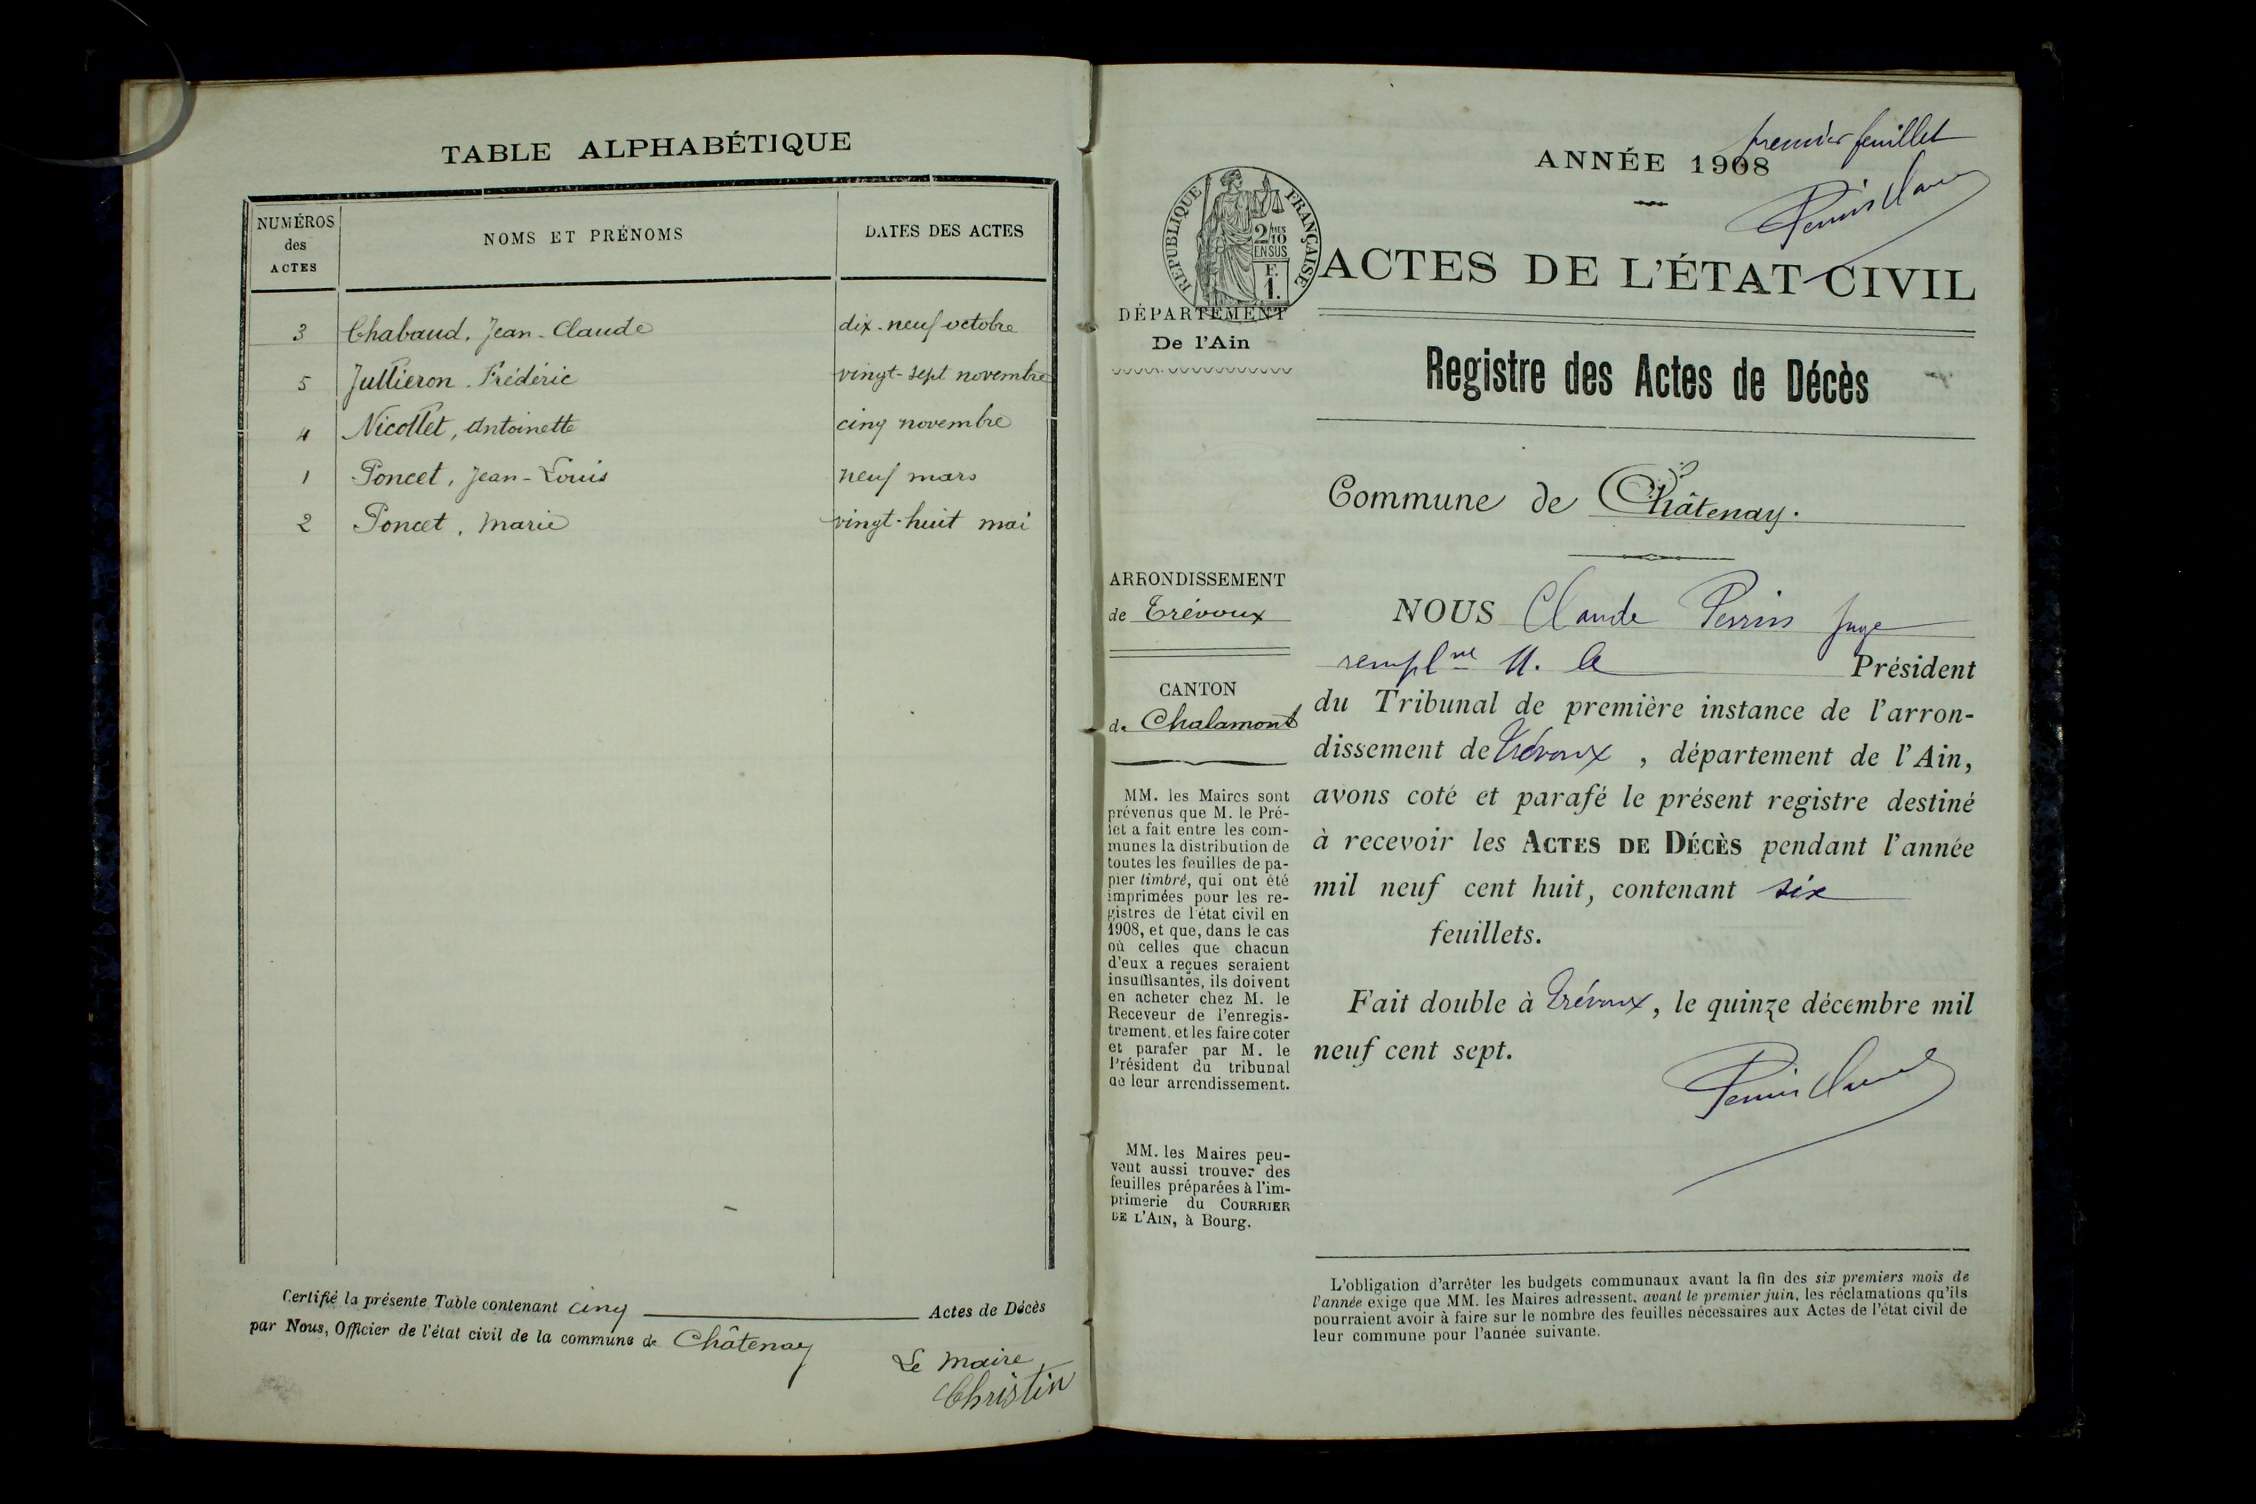 TABLE ALPHABÉTIQUE
NUMÉROS
des
ACTES
NOMS ET PRÉNOMS
DATES DES ACTES
3 Chabaud, Jean-Claude dix-neuf octobre
5 Jullieron Frédéric vingt-sept novembre
4 Nicollet, Antoinette cinq novembre
1 Poncet, Jean-Louis neuf mars
2 Poncet, Marie vingt-huit mai
Certifié la présente Table contenant cinq Actes de Décès
par Nous, Officier de l'état civil de la commune de Châtenay
Le Maire
Christin
premier feuillet
ANNÉE 1908
Perrin Claude
RÉPUBLIQUE FRANÇAISE
2/10 MES
EN SUS
F.
1.
ACTES DE L'ÉTAT CIVIL
DÉPARTEMENT
De l'Ain
Registre des Actes de Décès
Commune de Châtenay.
ARRONDISSEMENT
de Trévoux
CANTON
de Chalamont
MM. les Maires sont
prévenus que M. le Pré-
fet a fait entre les com-
munes la distribution de
toutes les feuilles de pa-
pier timbré, qui ont été
imprimées pour les re-
gistres de l'état civil en
1908, et que, dans le cas
où celles que chacun
d'eux a reçues seraient
insuffisantes, ils doivent
en acheter chez M. le
Receveur de l'enregis-
trement, et les faire coter
et parafer par M. le
Président du tribunal
de leur arrondissement.
MM. les Maires peu-
vent aussi trouver des
feuilles préparées à l'im-
primerie du COURRIER
DE L'AIN, à Bourg.
NOUS Claude Perrin Juge
remplnt M. le Président
du Tribunal de première instance de l'arron-
dissement de Trévoux, département de l'Ain,
avons coté et parafé le présent registre destiné
à recevoir les ACTES DE DÉCÈS pendant l'année
mil neuf cent huit, contenant six
feuillets.
Fait double à Trévoux, le quinze décembre mil
neuf cent sept.
Perrin Claude
L'obligation d'arrêter les budgets communaux avant la fin des six premiers mois de
l'année exige que MM. les Maires adressent, avant le premier juin, les réclamations qu'ils
pourraient avoir à faire sur le nombre des feuilles nécessaires aux Actes de l'état civil de
leur commune pour l'année suivante.